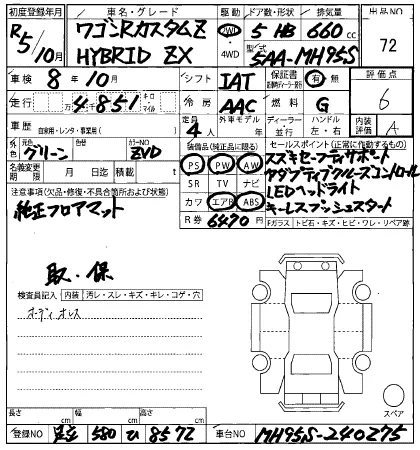 初度登録年月 車名・グレード 駆動 ドア数・形状 排気量 出品NO
R5/10月 ワゴンRカスタムZ HYBRID ZX 2WD・4WD 5 HB 660cc 72
型式 5AA-MH95S
車検 8年10月 シフト IAT 保証書 有 無 評価点
走行 万 4千851 キロ マイル 冷房 AAC 燃料 G 6
車歴 自家用・レンタ・事業用( ) 定員 4人 外車モデル 年 ディーラー・並行 ハンドル 左・右 内装評価 A
外色 グリーン 内色 カラーNO ZVD 装備品(純正品に限る) セールスポイント(正常に作動するもの)
名義変更期限 月 日迄 積載量 t PS PW AW スズキセーフティサポート
注意事項(欠品・修復・不具合箇所および状態) SR TV ナビ アダプティブクルーズコントロール
純正フロアマット カワ エアB ABS LEDヘッドライト
R券 6470円 キーレスプッシュスタート
Fガラス トビ石・キズ・ヒビ・ワレ・リペア跡
取・保
検査員記入 内装 汚レ・スレ・キズ・キレ・コゲ・穴
ボーディオレス
スペア
長さ cm 幅 cm 高さ cm
登録NO 足立 580 ひ 8572 車台NO MH95S-240275